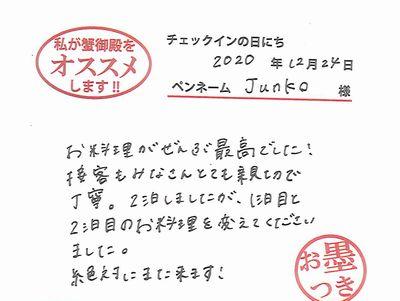 私が蟹御殿を
オススメ
します!!
チェックインの日にち
2020 年 12月 24日
ペンネーム Junko 様
お料理がぜんぶ最高でした!
接客もみなさんとても親切で
丁寧。2泊しましたが、1泊目と
2泊目のお料理を変えてください
ました。
絶対にまた来ます!
お墨
つき